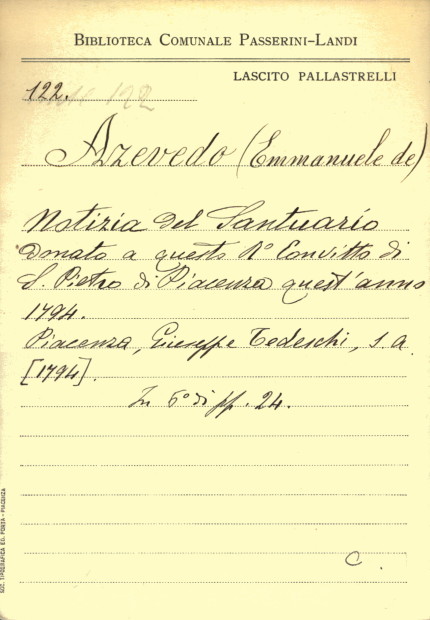 BIBLIOTECA COMUNALE PASSERINI-LANDI
LASCITO PALLASTRELLI
122.
Azevedo (Emmanuele de)
Notizia del Santuario
Donato a questo R° Convitto di
S. Pietro di Piacenza quest'anno
1794.
Piacenza, Giuseppe Tedeschi, s. a.
[1794].
In 6° di pp. 24.
C.
SOC. TIPOGRAFICA ED. PORTA - PIACENZA